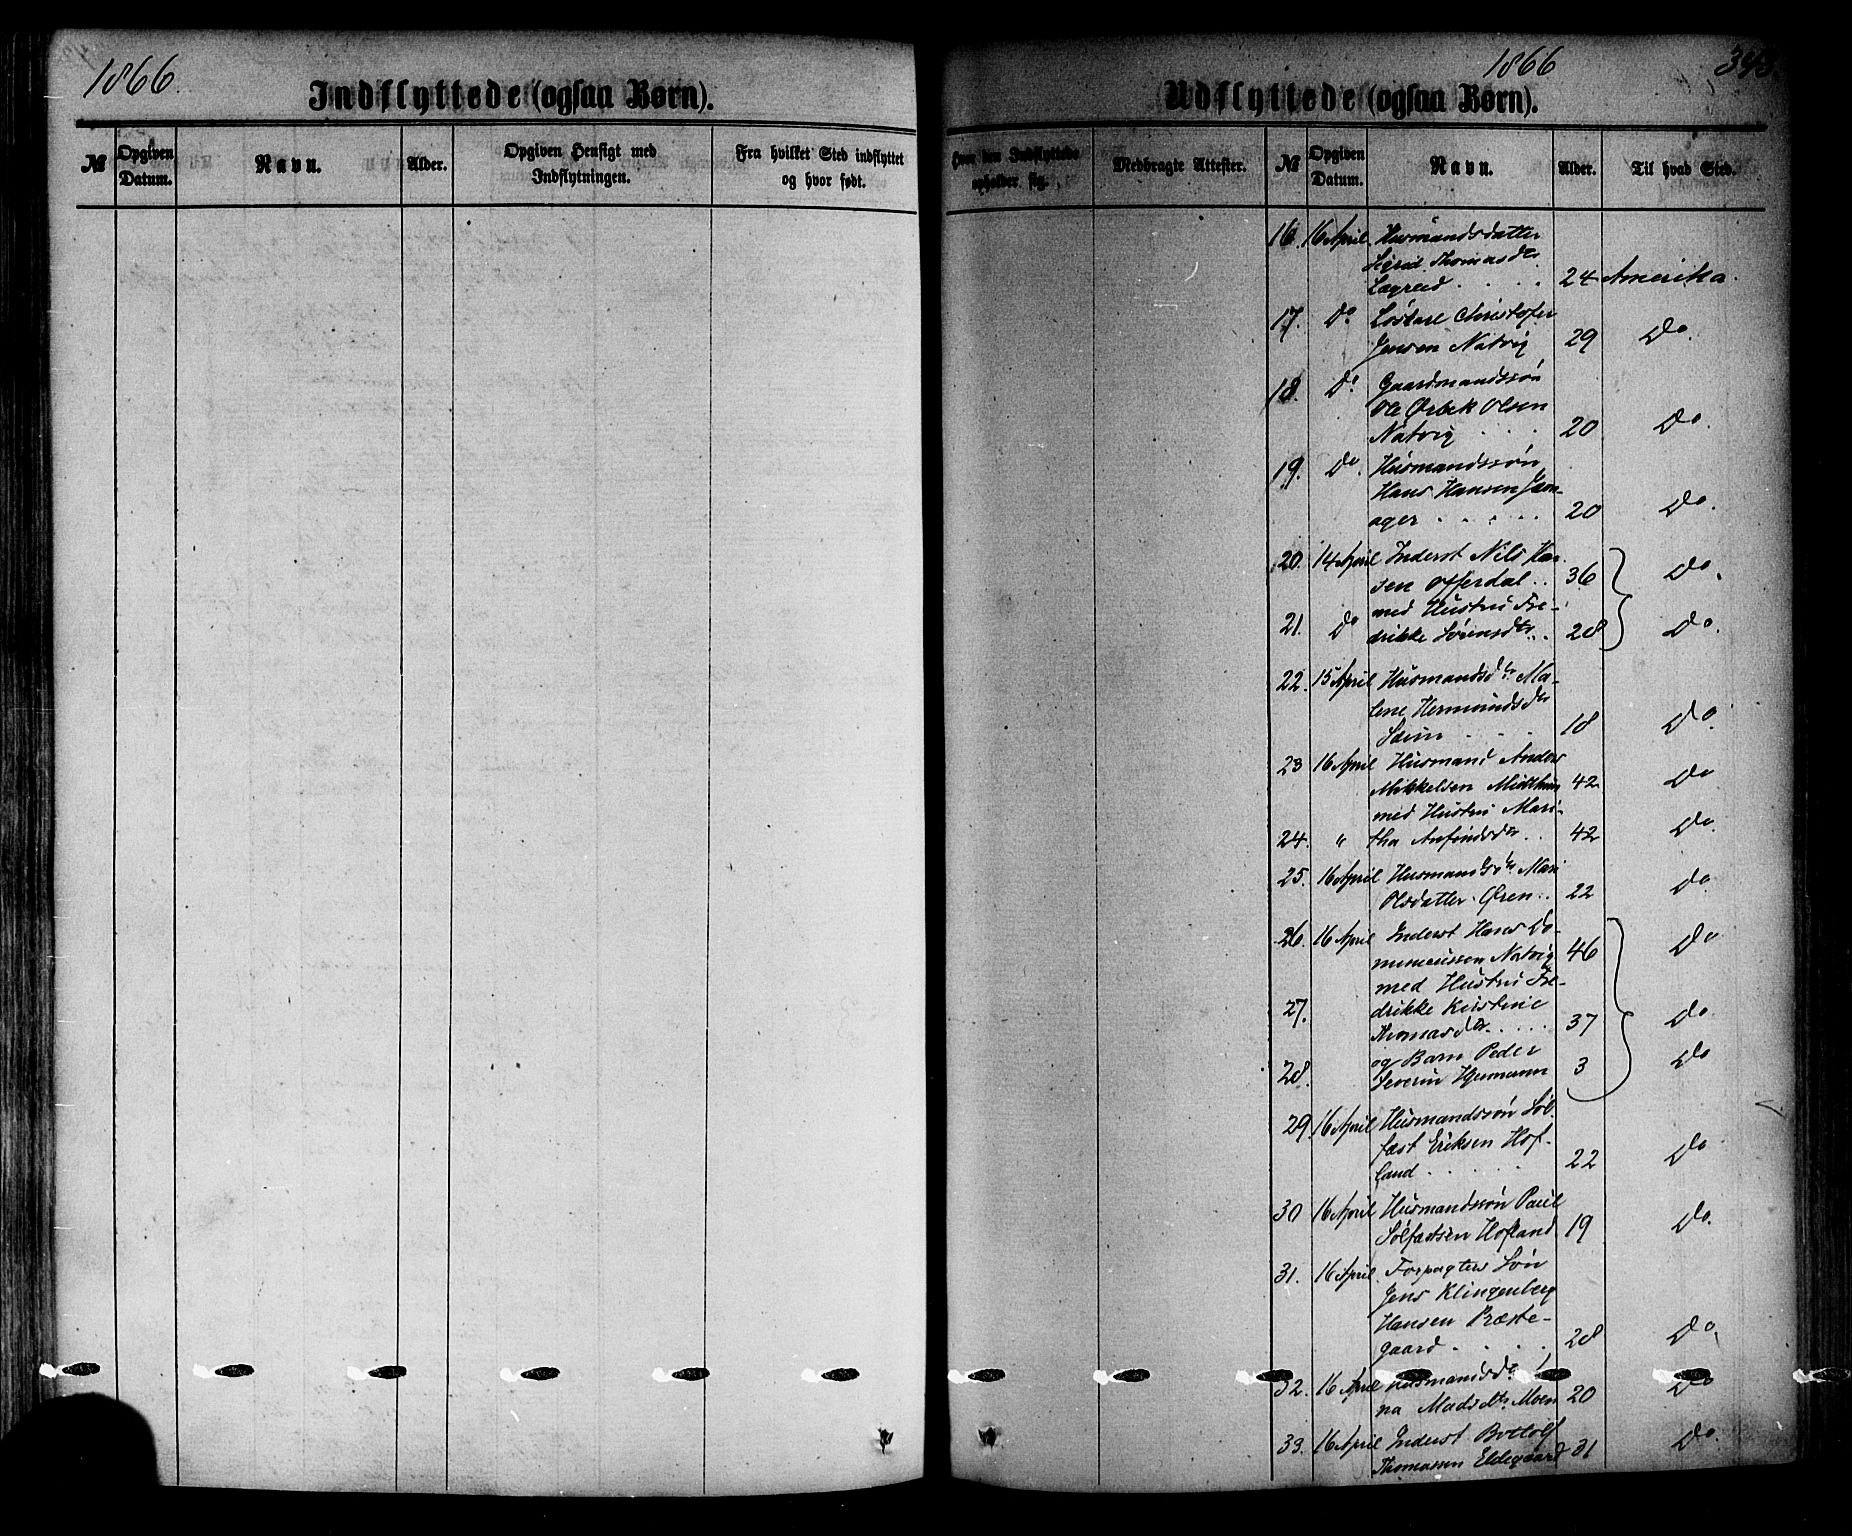 1866.
Indflyttede (ogsaa Børn).
№ Opgiven Datum. Navn. Alder. Opgiven Hensigt med Indflytningen. Fra hvilket Sted indflyttet og hvor født.
1866 343.
Udflyttede (ogsaa Børn).
Hvor den Indflyttede opholder sig. Medbragte Attester. № Opgiven Datum. Navn. Alder. Til hvad Sted.
16. 16 April Husmandsdatter
Sigrid Thomasdtr
Lægreid . . . . 24 Amerika.
17. Do Løskarl Christofer
Jensen Natvig 29 Do.
18. Do Gaardmandssøn
Ole Ørbek Olsen
Natvig . . . 20 Do.
19. Do. Husmandssøn
Hans Hansen
ager . . . . . 20 Do.
20. 14 April Inderst Nils Han-
sen Offerdal . . 36 Do.
med Hustru Fre-
21. Do drikke Sørensdtr. . 28 Do.
22. 15 April Husmandsdtr Ma-
lene Hermundsdtr
. . . 18 Do.
23 16 April Husmand Anders
Mikkelsen Midthun 42 Do
med Hustru Mari-
24. " tha Anfindsdtr . . 42 Do.
25. 16 April Husmandsdtr Mari
Olsdatter Øren . . 22 Do
26. 16 April Inderst Hans Do-
Natvig 46 Do
med Hustru Fre-
27. drikke Kristine
Thomasdtr. . . . . 37 Do
og Barn Peder
28. Severin Hermann 3 Do
29. 16 April Husmandssøn Søl-
fast Eriksen Hof-
land . . . . . 22 Do
30 16 April Husmandssøn Paul
Sølfastsen Hofland 19 Do.
31. 16 April. Forpagters Søn
Jens Klingenberg
Hansen Præste-
gaard . . . . . 28 Do.
32. 16 April Husmandsdtr
na Madsdtr. Moen 20 Do
33. 16 April Inderst Bottolf
Thomasen Eldegaard 31 Do.